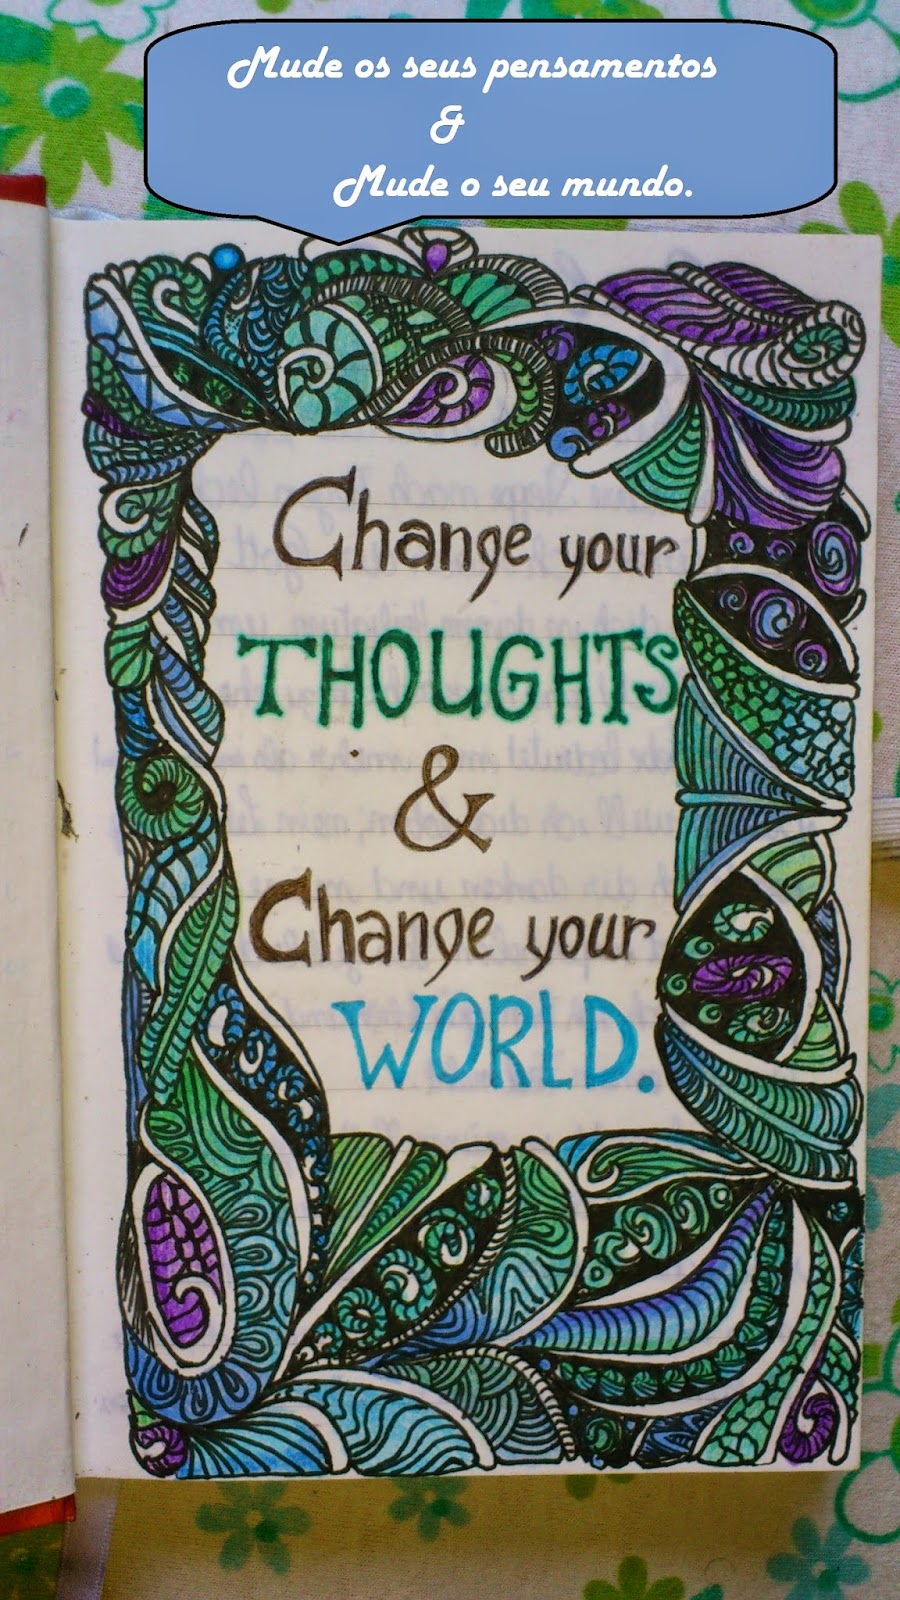 Mude os seus pensamentos
&
Mude o seu mundo.
Change your
THOUGHTS
&
Change your
WORLD.